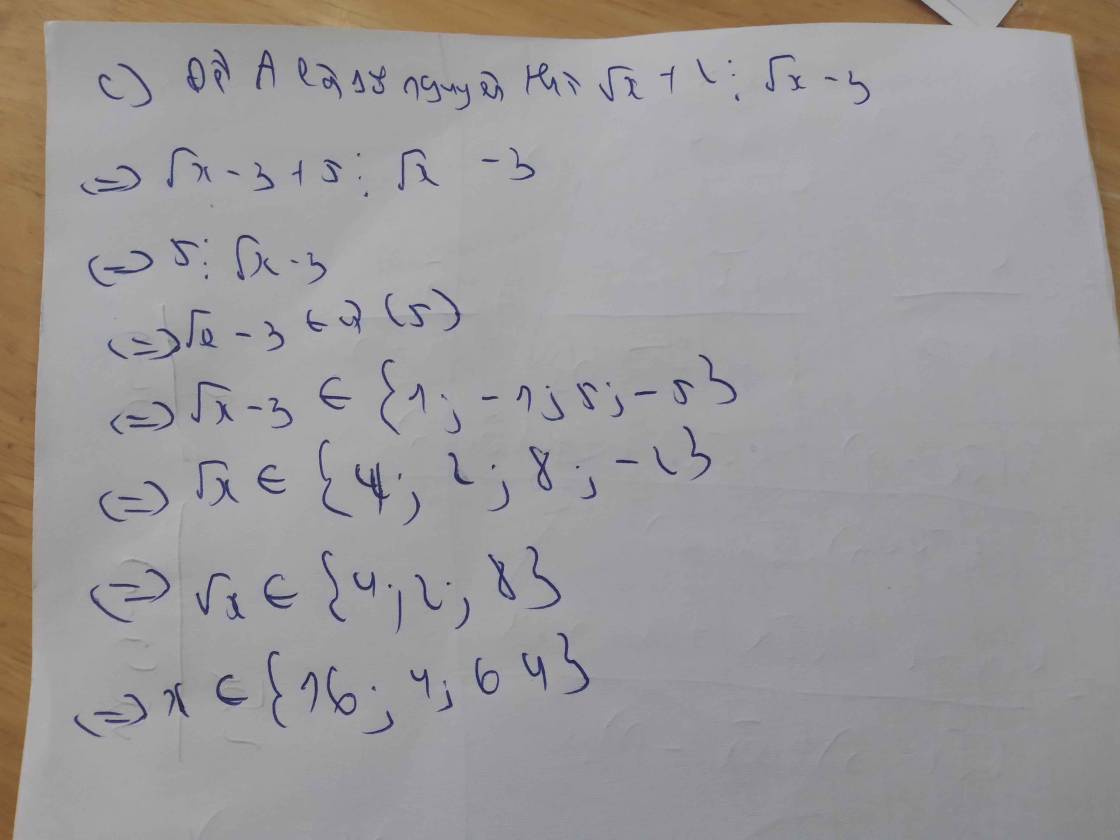 c) Để A là 1 số nguyên thì √x + 2 ⋮ √x - 3
(=) √x - 3 + 5 ⋮ √x - 3
(=) 5 ⋮ √x - 3
(=) √x - 3 ∈ Ư (5)
(=) √x - 3 ∈ {1; -1; 5; -5}
(=) √x ∈ {4; 2; 8; -2}
(=) √x ∈ {4; 2; 8}
(=) x ∈ {16; 4; 64}